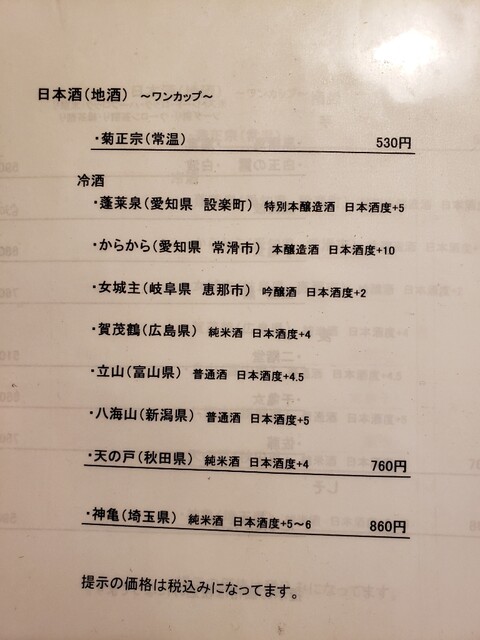 日本酒(地酒) ～ワンカップ～
・菊正宗(常温) 530円
冷酒
・蓬莱泉(愛知県 設楽町) 特別本醸造酒 日本酒度+5
・からから(愛知県 常滑市) 本醸造酒 日本酒度+10
・女城主(岐阜県 恵那市) 吟醸酒 日本酒度+2
・賀茂鶴(広島県) 純米酒 日本酒度+4
・立山(富山県) 普通酒 日本酒度+4.5
・八海山(新潟県) 普通酒 日本酒度+5
・天の戸(秋田県) 純米酒 日本酒度+4 760円
・神亀(埼玉県) 純米酒 日本酒度+5～6 860円
提示の価格は税込みになってます。